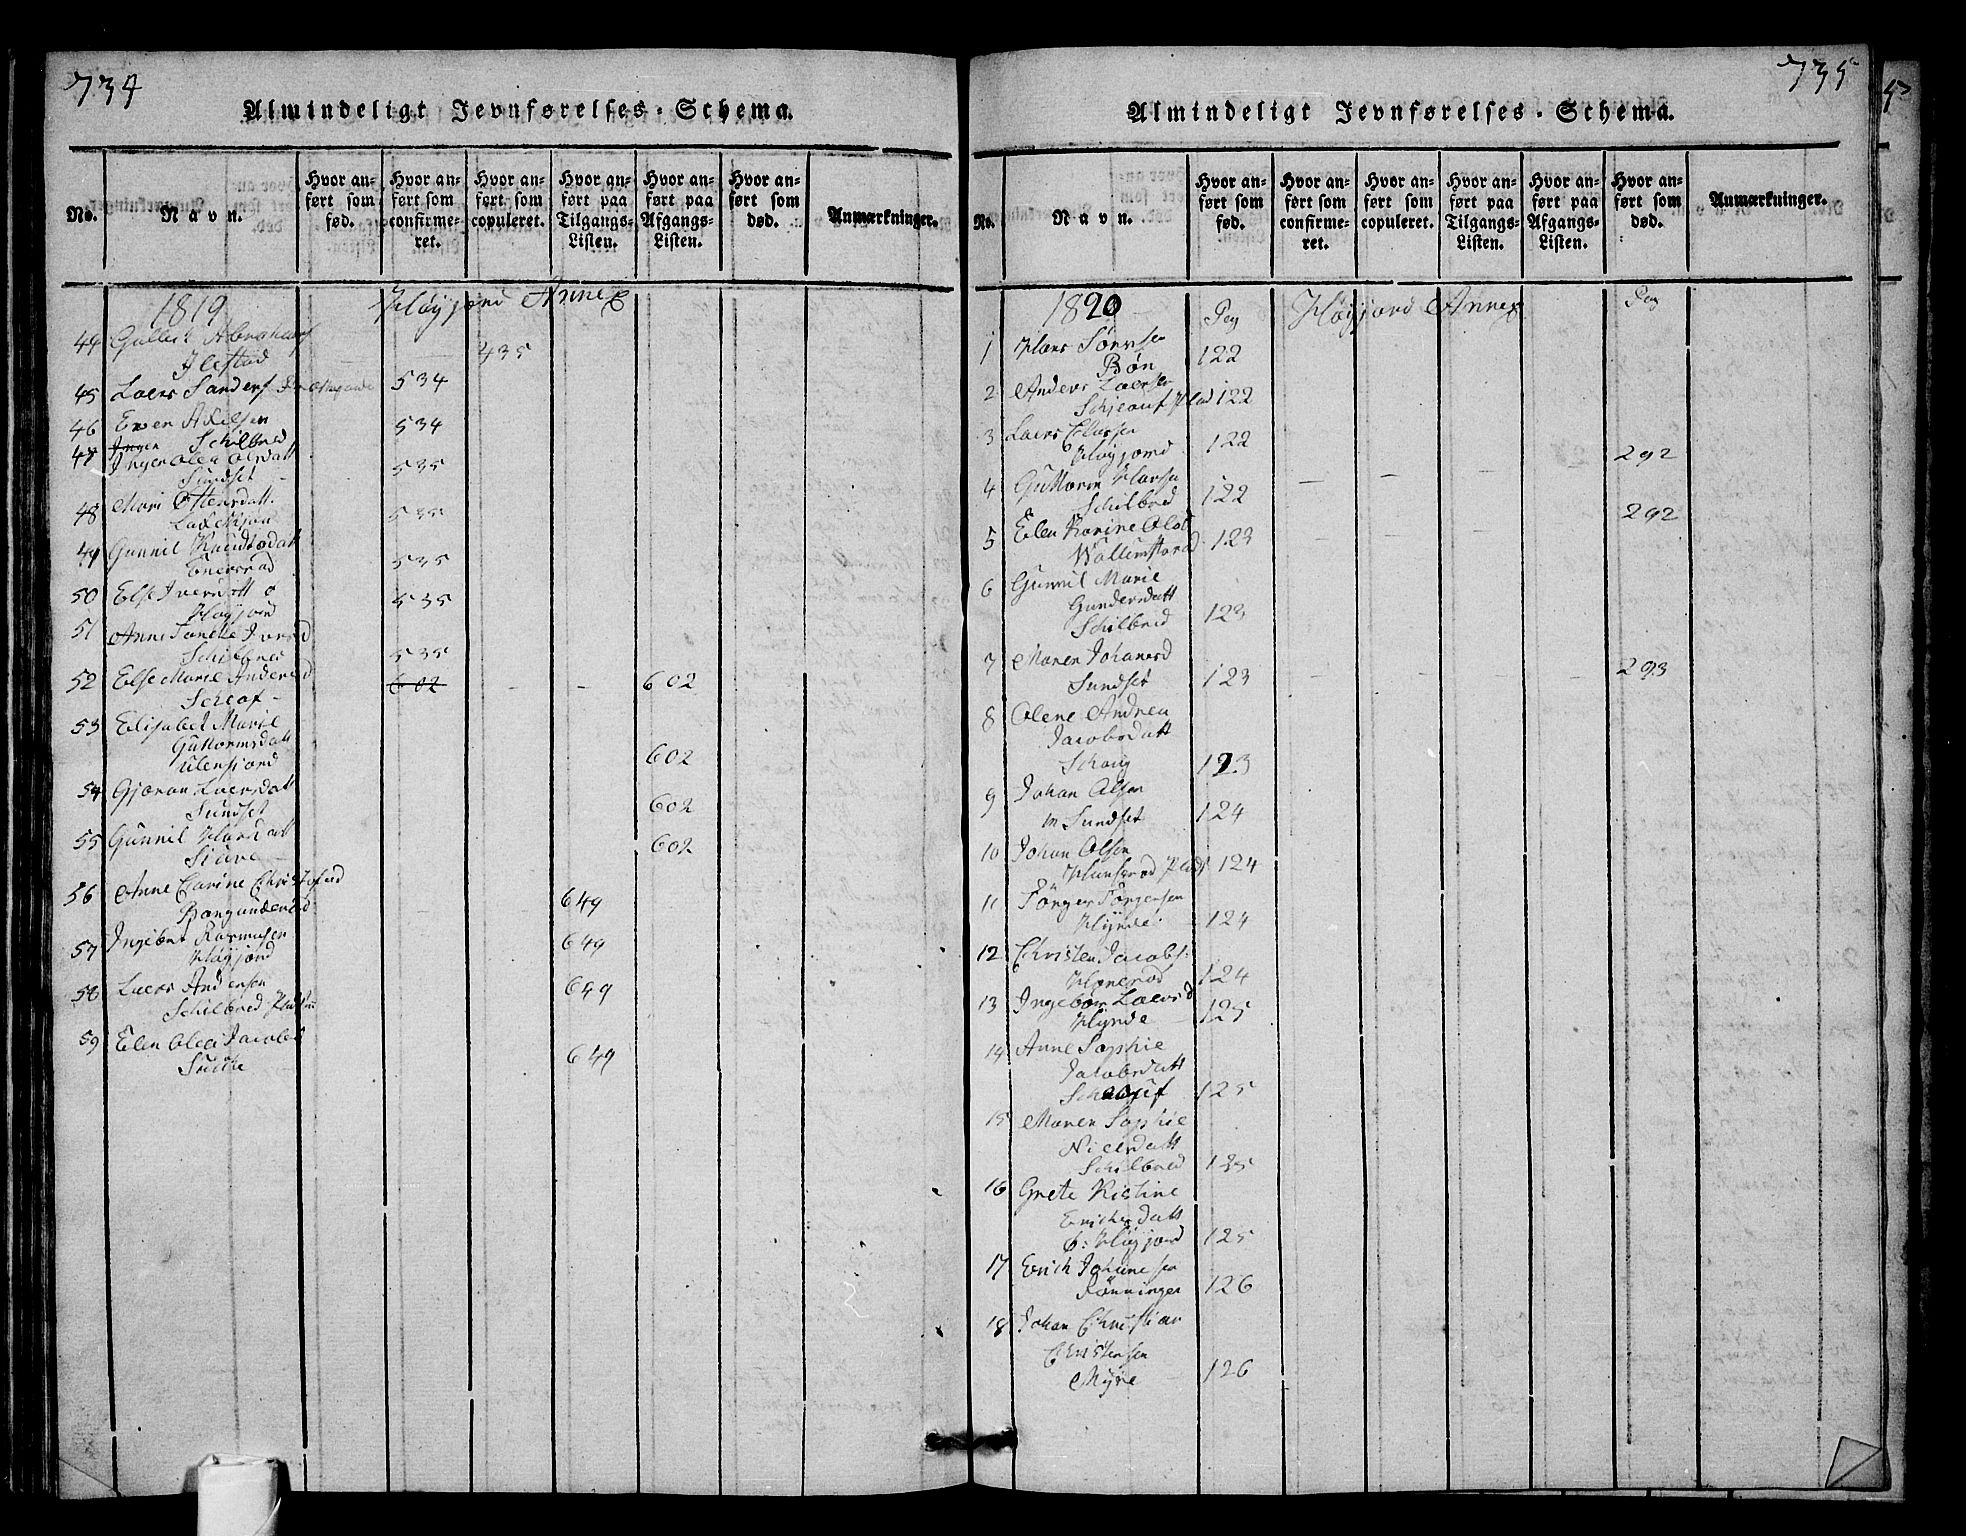 734
Almindeligt Jevnførelses-Schema.
No. Navn. Hvor anført som fød. Hvor anført som confirmeret. Hvor anført som copuleret. Hvor anført paa Tilgangs-Listen. Hvor anført paa Afgangs-Listen. Hvor anført som død. Anmærkninger.
1819 Høyjord Annex
44 Gullich
Ilestad 435
45 Laers 534
46 Even Axelsen
Schilbred 534
47 Ingen
Inger Olea Olsdatt
Sundset 535
48 Mari Ottersdatt.
535
49 Gunnil Knudtsdatt
535
50 Else Iversdatt
Høyjord 535
51 Anne Iversd
Schilbred 535
52 Else Marie Andersd 602 - - 602
53 Elisabet Marie
Guttormsdatt
602
54 Gjøran Laersdatt
Sundset 602
55 Gunnil Hansdatt
602
56 Anne Carine Christofsd
649
57 Ingebret Rasmusen
Høyjord 649
58 Laers Andersen
Schilbred 649
59 Elen Olea Jacobsd
649
735
Almindeligt Jevnførelses-Schema.
No. Navn. Hvor anført som fød. Hvor anført som confirmeret. Hvor anført som copuleret. Hvor anført paa Tilgangs-Listen. Hvor anført paa Afgangs-Listen. Hvor anført som død. Anmærkninger.
1820 Pag Høyjord Annex Pag
1 Hans Sørnsen
Bøn 122
2 Anders Laersen
122
3 Laers
Høyjord 122 292
4 Guttorm Hansen
Schilbred 122 292
5 Elen Karine Olsd
123
6 Gunnil Marie
Gundersdatt
Schilbred 123
7 Maren Johanesd
Sundset 123 293
8 Olene Andrea
Jacobsdatt
123
9 Johan Olsen
Sundset 124
10 Johan Olsen
124
11 Törger Törgersen
Hÿnde 124
12 Christen Jacobs:
124
13 Ingebor Laersd
Hÿnde 125
14 Anne Sophie
Jacobsdatt
125
15 Maren Sophie
Nielsdatt
Schilbred 125
16 Grete Kistine
Erichsdatt
Høyjord 125
17 Erich Johanesen
Rönningen 126
18 Johan Christian
Christensen
Mÿre 126